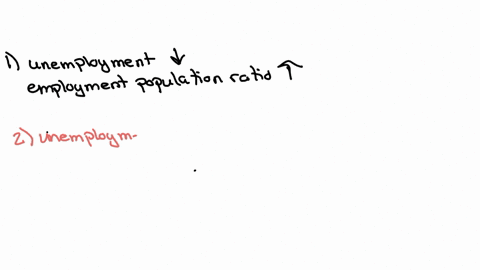 1) unemployment ↓
employment population ratio ↑
2) unemploym